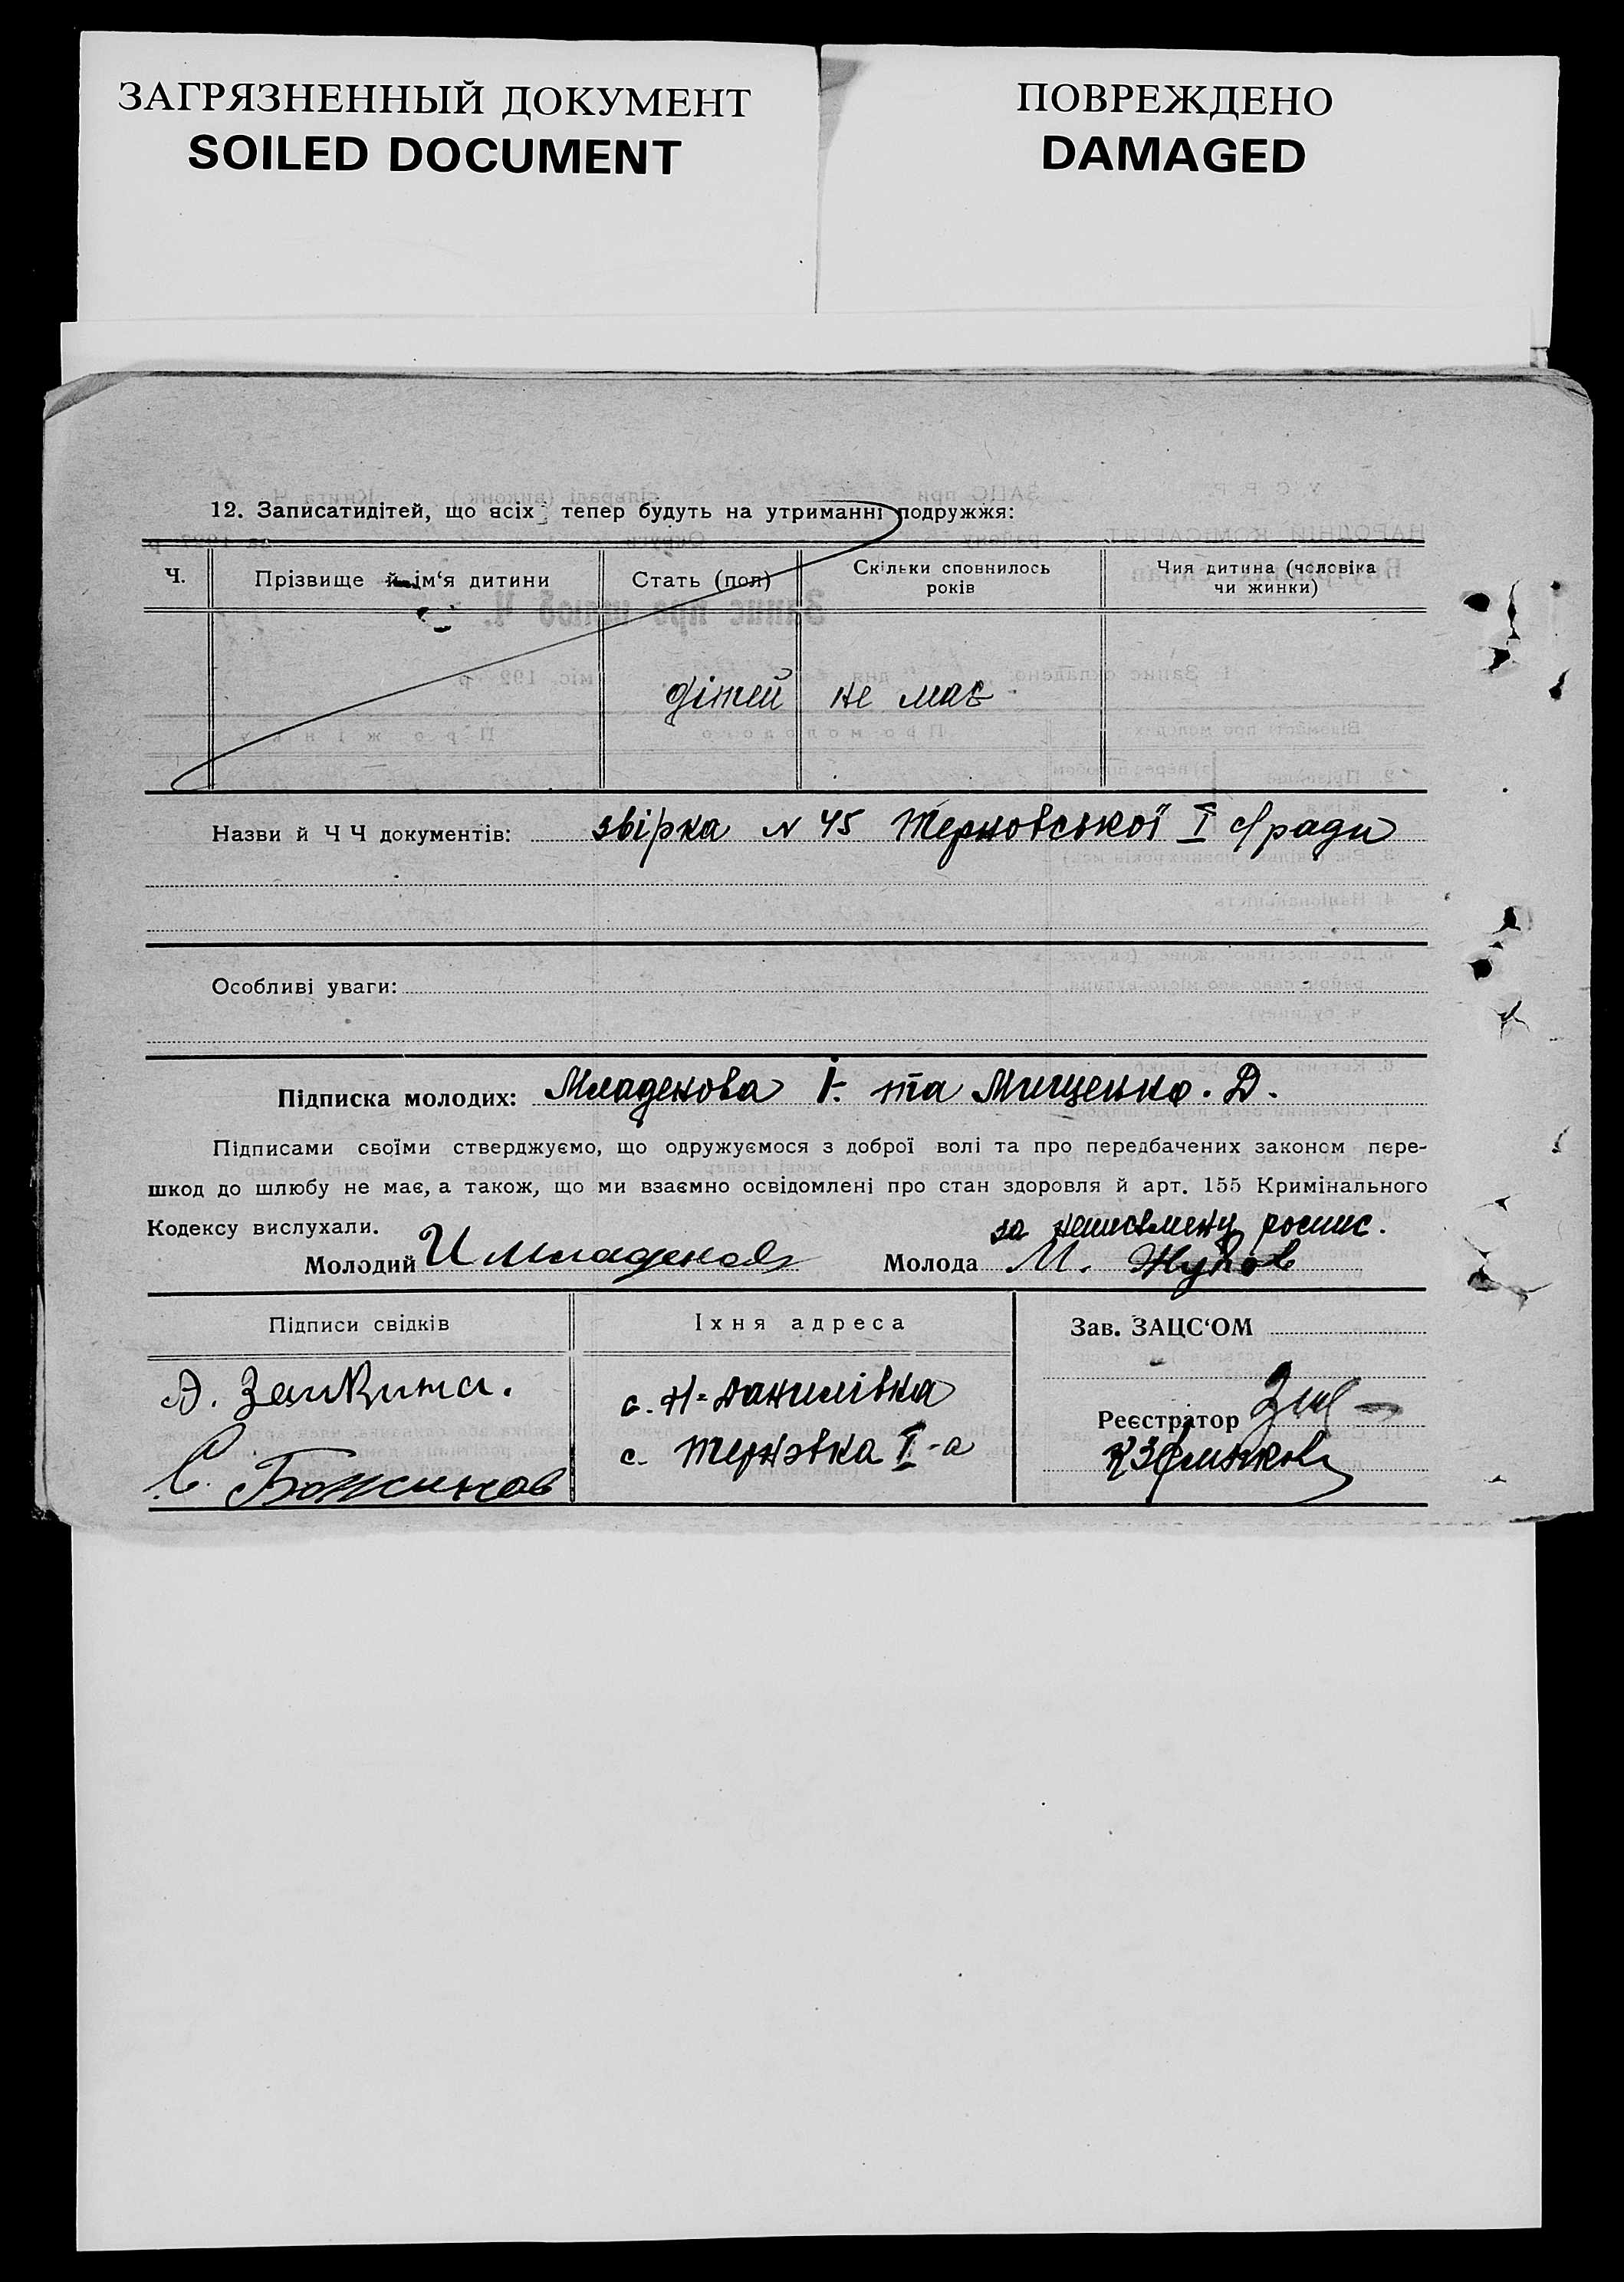 ЗАГРЯЗНЕННЫЙ ДОКУМЕНТ
SOILED DOCUMENT
ПОВРЕЖДЕНО
DAMAGED
12. Записатидітей, що всіх тепер будуть на утриманні подружжя:
Ч.
Прізвище й ім‘я дитини
Стать (пол)
Скільки сповнилось
років
Чия дитина (чоловіка
чи жинки)
дітей не має
Назви й Ч Ч документів: звірка N 45 Терновської І с/ради
Особливі уваги:
Підписка молодих: Младенова І. та Мищенко. Д.
Підписами своїми стверджуємо, що одружуємося з доброї волі та про передбачених законом пере-
шкод до шлюбу не має, а також, що ми взаємно освідомлені про стан здоровля й арт. 155 Кримінального
Кодексу вислухали.
за неписьмену роспис.
Молодий И Младенов Молода М. Жуков
Підписи свідків
Їхня адреса
Зав. ЗАЦС‘ОМ
с. Н-Данилівка
Реєстратор
с. Терновка І-а
С. Божинов